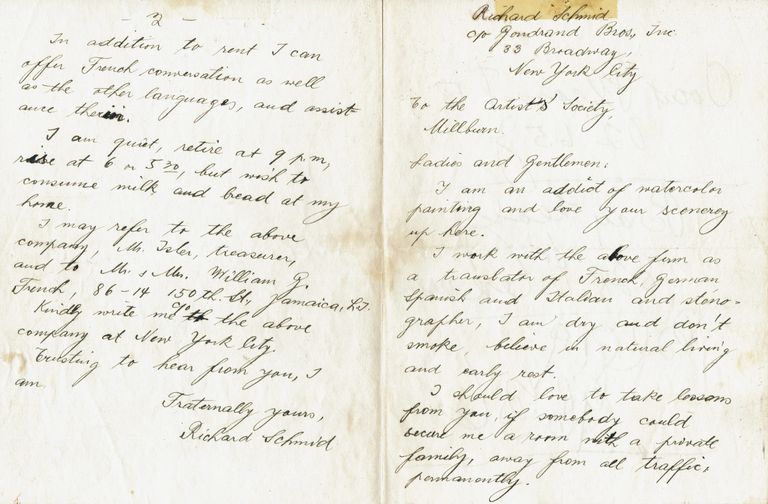 Richard Schmid
c/o Gondrand Bros, Inc.
33 Broadway,
New York City
To the Artist's Society,
Millburn.
Ladies and Gentlemen:
I am an addict of watercolor
painting and love your scenerey
up here.
I work with the above firm as
a translator of French, German
Spanish and Italian and steno-
grapher, I am dry and don't
smoke, believe in natural living
and early rest.
I should love to take lessons
from you, if somebody could
secure me a room with a private
family, away from all traffic,
permanently.
- 2 -
In addition to rent I can
offer French conversation as well
as the other languages, and assist-
ance therein.
I am quiet, retire at 9 p.m,
rise at 6 or 5 30, but wish to
consume milk and bead at my
home.
I may refer to the above
company, Mr. Isler, treasurer,
and to Mr. & Mrs. William G.
French, 86-14 150th. St, Jamaica, L.I.
Kindly write me c/o the above
company at New York City.
Trusting to hear from you, I
am
Fraternally yours,
Richard Schmid